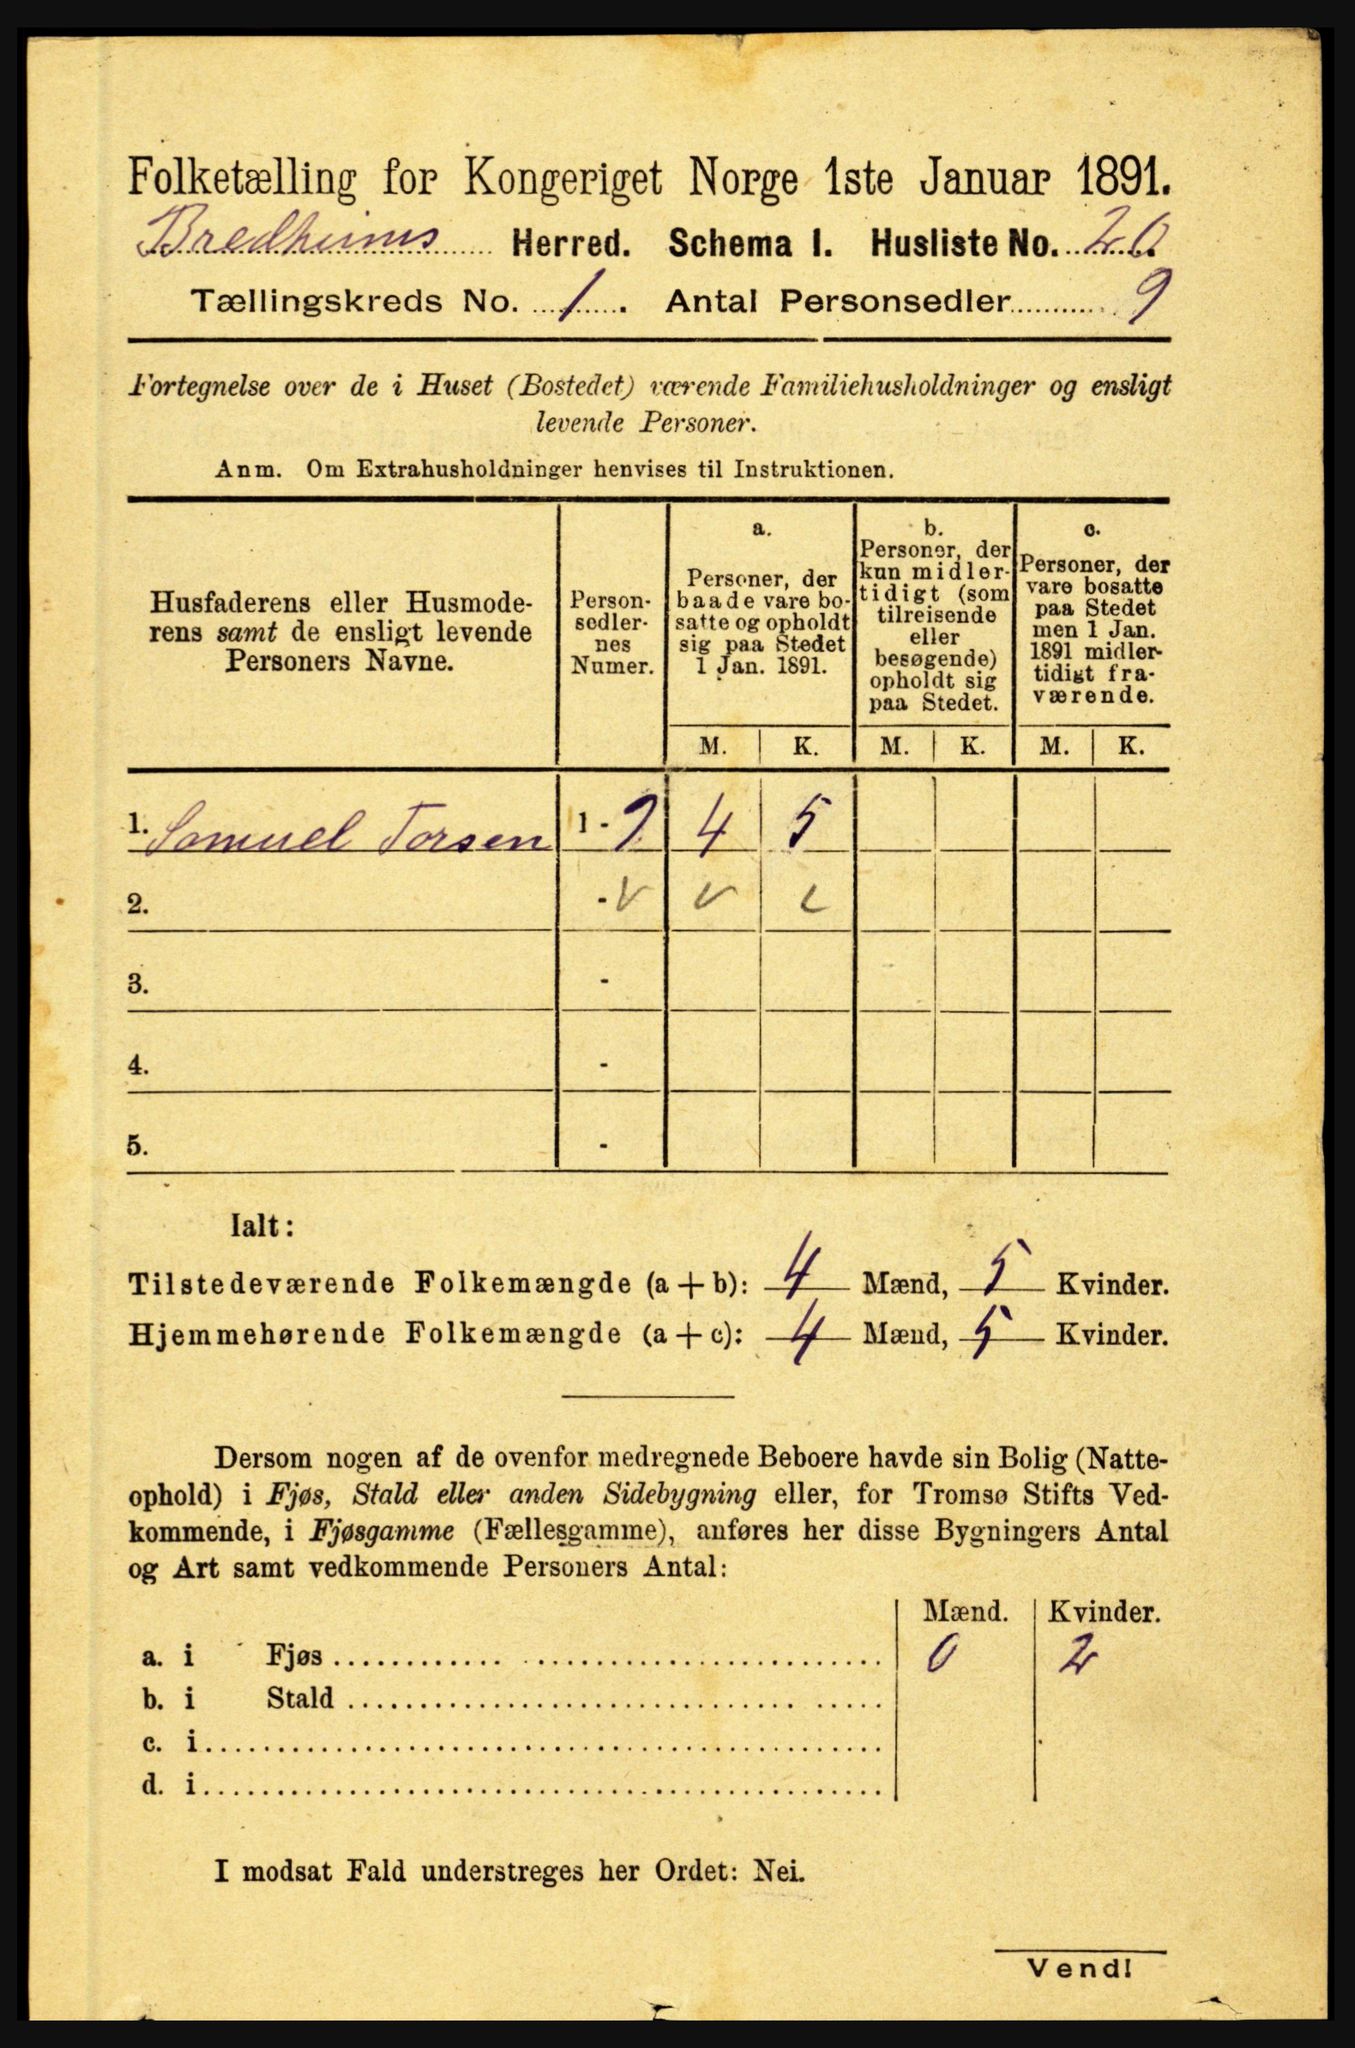 Folketælling for Kongeriget Norge 1ste Januar 1891.
Bredheims Herred. Schema I. Husliste No. 20
Tællingskreds No. 1. Antal Personsedler 9
Fortegnelse over de i Huset (Bostedet) værende Familiehusholdninger og ensligt
levende Personer.
Anm. Om Extrahusholdninger henvises til Instruktionen.
Husfaderens eller Husmode-
rens samt de ensligt levende
Personers Navne.
Person-
sedler-
nes
Numer.
a.
Personer, der
baade vare bo-
satte og opholdt
sig paa Stedet
1 Jan. 1891.
b.
Personer, der
kun midler-
tidigt (som
tilreisende
eller
besøgende)
opholdt sig
paa Stedet.
c.
Personer, der
vare bosatte
paa Stedet
men 1 Jan.
1891 midler-
tidigt fra-
værende.
M. K. M. K. M. K.
1. Samuel Torsen 1 - 9 4 5
2. - v v v
3. -
4. -
5. -
Ialt:
Tilstedeværende Folkemængde (a + b): 4 Mænd, 5 Kvinder.
Hjemmehørende Folkemængde (a + c): 4 Mænd, 5 Kvinder.
Dersom nogen af de ovenfor medregnede Beboere havde sin Bolig (Natte-
ophold) i Fjøs, Stald eller anden Sidebygning eller, for Tromsø Stifts Ved-
kommende, i Fjøsgamme (Fællesgamme), anføres her disse Bygningers Antal
og Art samt vedkommende Personers Antal:
Mænd. Kvinder.
a. i Fjøs 0 2
b. i Stald
c. i
d. i
I modsat Fald understreges her Ordet: Nei.
Vend!